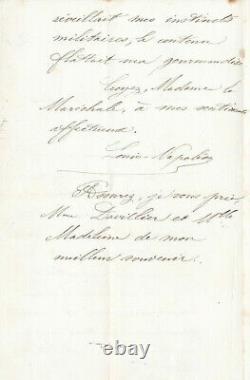 réveillait mes instincts
militaires, le contenu
flattait ma gourmandise
Croyez, Madame la
Maréchale, à mes sentiments
affectueux.
Louis-Napoléon
je vous prie,
Mme Davillier et Mlle
Madeleine de mon
meilleur souvenir.
© 123hh.com